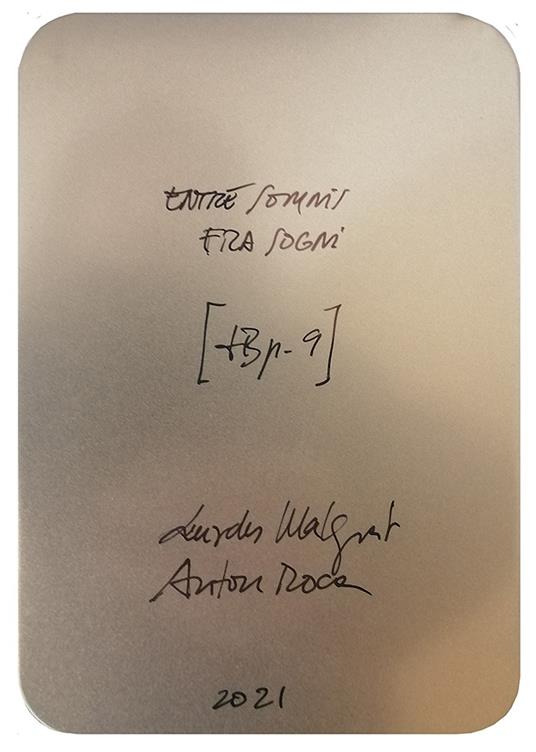 ENTRE SOMNIS
FRA SOGNI
[tBp-9]
Lurdes Malgrat
Anton Roca
2021